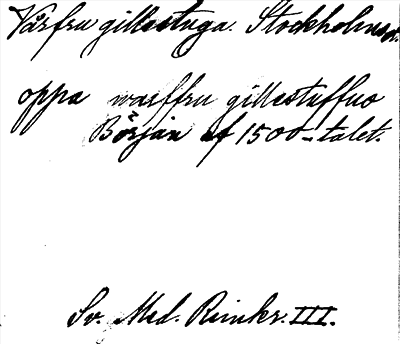 Vårfru gillestuga. Stockholm
oppa warffru gillestuffuo
Början af 1500-talet.
Sv. Med. Rimkr. III.